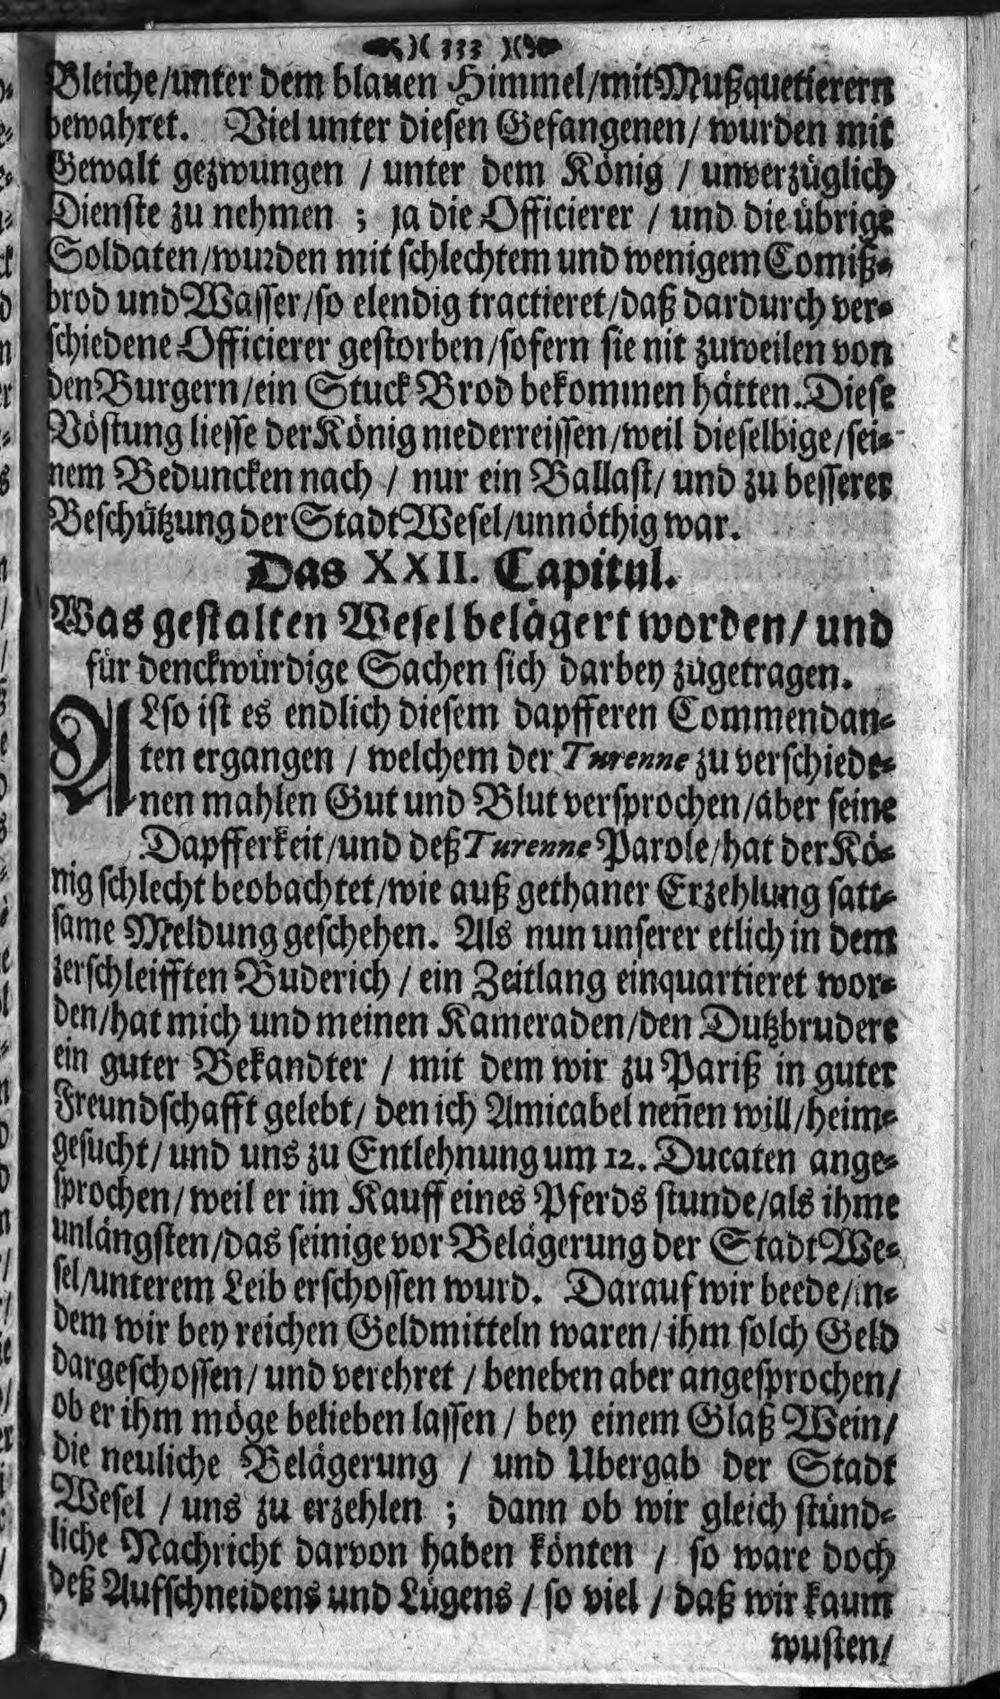 )( 333 )(
Bleiche/unter dem blauen Himmel/mit Mußquetierern
bewahret. Viel unter diesen Gefangenen/ wurden mit
Gewalt gezwungen / unter dem König / unverzüglich
Dienste zu nehmen ; ja die Officierer / und die übrige
Soldaten/wurden mit schlechtem und wenigem Comiß-
brod und Wasser/so elendig tractieret/daß dardurch ver-
schiedene Officierer gestorben/sofern sie nit zuweilen von
den Burgern/ein Stuck Brod bekommen hätten. Diese
Vöstung liesse der König niederreissen/weil dieselbige/sei-
nem Beduncken nach / nur ein Ballast/ und zu besserer
Beschützung der Stadt Wesel/unnöthig war.
Das XXII. Capitul.
Was gestalten Wesel belägert worden/ und
für denckwürdige Sachen sich darbey zugetragen.
ALso ist es endlich diesem dapfferen Commendan-
ten ergangen / welchem der Turenne zu verschiede-
nen mahlen Gut und Blut versprochen/aber seine
Dapfferkeit/und deß Turenne Parole/hat der Kö-
nig schlecht beobachtet/wie auß gethaner Erzehlung satt-
same Meldung geschehen. Als nun unserer etlich in dem
zerschleifften Buderich / ein Zeitlang einquartieret wor-
den/hat mich und meinen Kameraden/den Dutzbrudere
ein guter Bekandter / mit dem wir zu Pariß in guter
Freundschafft gelebt/ den ich Amicabel neñen will/heim-
gesucht/ und uns zu Entlehnung um 12. Ducaten ange-
sprochen/ weil er im Kauff eines Pferds stunde/als ihme
unlängsten/das seinige vor Belägerung der Stadt We-
sel/unterem Leib erschossen wurd. Darauf wir beede/in-
dem wir bey reichen Geldmitteln waren/ihm solch Geld
dargeschossen/ und verehret / beneben aber angesprochen/
ob er ihm möge belieben lassen / bey einem Glaß Wein/
die neuliche Belägerung / und Ubergab der Stadt
Wesel / uns zu erzehlen ; dann ob wir gleich stünd-
liche Nachricht darvon haben könten / so ware doch
deß Aufschneidens und Lügens / so viel / daß wir kaum
wusten/